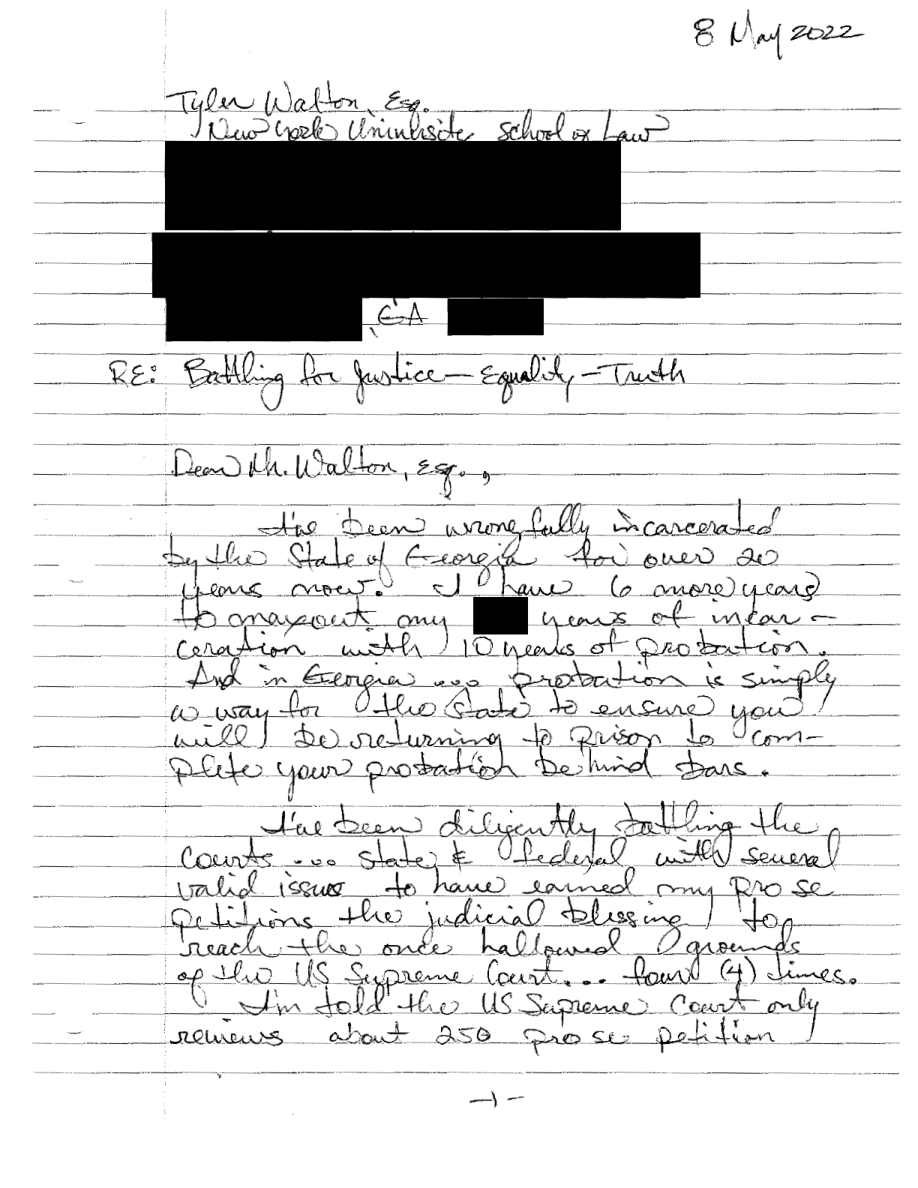 8 May 2022
Tyler Walton, Esq.
New York Univerisity School of Law
, GA
RE: Battling for Justice — Equality — Truth
Dear Mr. Walton, Esq.,
I've been wrongfully incarcerated
by the State of Georgia for over 20
years now. I have 6 more years
to maxout my years of incar-
ceration with 10 years of probation.
And in Georgia ... probation is simply
a way for the State to ensure you
will be returning to prison to com-
plete your probation behind bars.
I've been diligently battling the
courts ... state & federal with several
valid issues to have earned my pro se
petitions the judicial blessing to
reach the once hallowed grounds
of the US Supreme Court... four (4) times.
I'm told the US Supreme Court only
reviews about 250 pro se petition
-1-